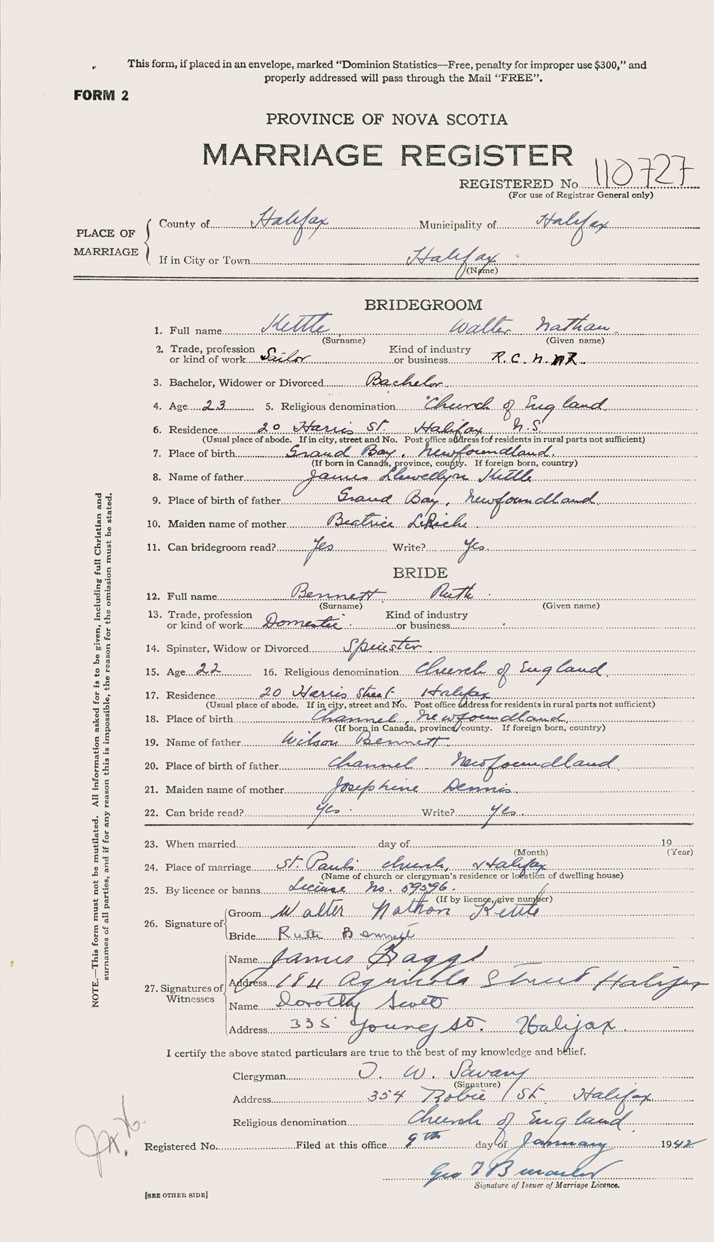 This form, if placed in an envelope, marked "Dominion Statistics—Free, penalty for improper use $300," and
properly addressed will pass through the Mail "FREE".
FORM 2
PROVINCE OF NOVA SCOTIA
MARRIAGE REGISTER
REGISTERED No. 110727
(For use of Registrar General only)
PLACE OF MARRIAGE
County of Halifax Municipality of Halifax
If in City or Town Halifax
(Name)
BRIDEGROOM
1. Full name Kettle Walter Nathan
(Surname) (Given name)
2. Trade, profession or kind of work Sailor Kind of industry or business R.C.N.
3. Bachelor, Widower or Divorced Bachelor
4. Age 23 5. Religious denomination Church of England
6. Residence 20 Harris St. Halifax N.S.
(Usual place of abode. If in city, street and No. Post office address for residents in rural parts not sufficient)
7. Place of birth Grand Bay, Newfoundland.
(If born in Canada, province, county. If foreign born, country)
8. Name of father James Llewellyn Kettle
9. Place of birth of father Grand Bay, Newfoundland.
10. Maiden name of mother Beatrice
11. Can bridegroom read? Yes Write? Yes
BRIDE
12. Full name Bennett Ruth
(Surname) (Given name)
13. Trade, profession or kind of work Domestic Kind of industry or business
14. Spinster, Widow or Divorced Spinster
15. Age 22 16. Religious denomination Church of England
17. Residence 20 Harris Street Halifax
(Usual place of abode. If in city, street and No. Post office address for residents in rural parts not sufficient)
18. Place of birth Channel, Newfoundland
(If born in Canada, province, county. If foreign born, country)
19. Name of father Wilson Bennett
20. Place of birth of father Channel Newfoundland
21. Maiden name of mother Josephine Dennis
22. Can bride read? Yes Write? Yes.
23. When married day of 19
(Month) (Year)
24. Place of marriage St. Paul's Church, Halifax
(Name of church or clergyman's residence or location of dwelling house)
25. By licence or banns License No. 59596.
(If by licence, give number)
26. Signature of
Groom Walter Nathan Kettle
Bride Ruth Bennett
27. Signatures of Witnesses
Name James Baggs
Address 184 Agricola Street Halifax
Name Dorothy
Address 335 Young St. Halifax
I certify the above stated particulars are true to the best of my knowledge and belief.
Clergyman W. Savary
(Signature)
Address 354 Robie St. Halifax
Religious denomination Church of England
Registered No. Filed at this office 9th day of January 1942
Geo
Signature of Issuer of Marriage Licence.
[SEE OTHER SIDE]
NOTE.—This form must not be mutilated. All information asked for is to be given, including full Christian and
surnames of all parties, and if for any reason this is impossible, the reason for the omission must be stated.